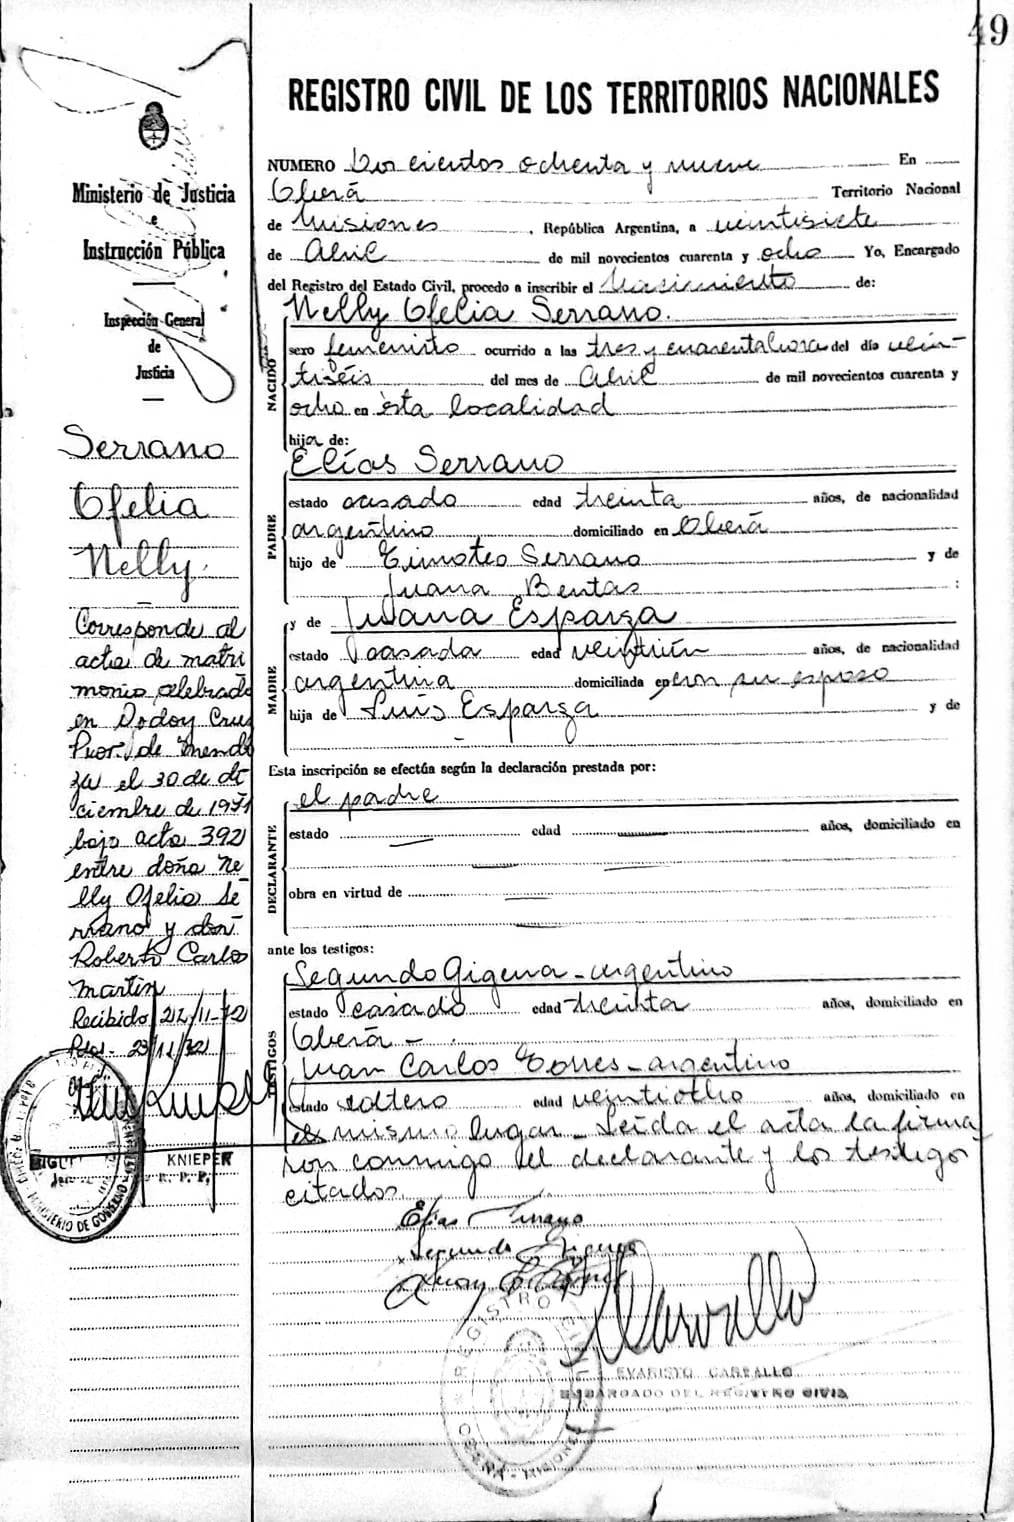 49
REGISTRO CIVIL DE LOS TERRITORIOS NACIONALES
Ministerio de Justicia
e
Instrucción Pública
Inspección General
de
Justicia
Serrano
Ofelia
Nelly.
Corresponde al
acta de matri
monio celebrado
en Godoy Cruz
Prov. de Mendo
za el 30 de di
ciembre de 1971
bajo acta 392
entre doña Ne
lly Ofelia Se
rrano y don
Roberto Carlos
Martin
Recibido 22/11-72
23/11/72
KNIEPER
R. P. P.
MINISTERIO DE GOBIERNO
NUMERO Dos cientos ochenta y nueve En
Oberá Territorio Nacional
de Misiones, República Argentina, a veintisiete
de Abril de mil novecientos cuarenta y ocho Yo, Encargado
del Registro del Estado Civil, procedo a inscribir el Nacimiento de:
NACIDO
Nelly Ofelia Serrano.
sexo femenino ocurrido a las tres y cuarenta hora del día vein-
tiséis del mes de Abril de mil novecientos cuarenta y
ocho en ésta localidad
hija de:
PADRE
Elías Serrano
estado casado edad treinta años, de nacionalidad
argentino domiciliado en Oberá
hijo de Timoteo Serrano y de
Juana Bentas :
MADRE
y de Juana Esparza
estado casada edad veintiún años, de nacionalidad
argentina domiciliada en con su esposo
hija de Luis Esparza y de
Esta inscripción se efectúa según la declaración prestada por:
DECLARANTE
el padre
estado edad años, domiciliado en
obra en virtud de
ante los testigos:
TESTIGOS
Segundo Gigena - argentino
estado casado edad treinta años, domiciliado en
Oberá -
Juan Carlos Torres - argentino
estado soltero edad veintiocho años, domiciliado en
el mismo lugar - Leída el acta la firma
ron conmigo el declarante y los testigos
citados.
Elías Serrano
Segundo Gigena
Juan C. Torres
Carvallo
EVARISTO CARVALLO
ENCARGADO DEL REGISTRO CIVIL
REGISTRO CIVIL
OBERA - MISIONES